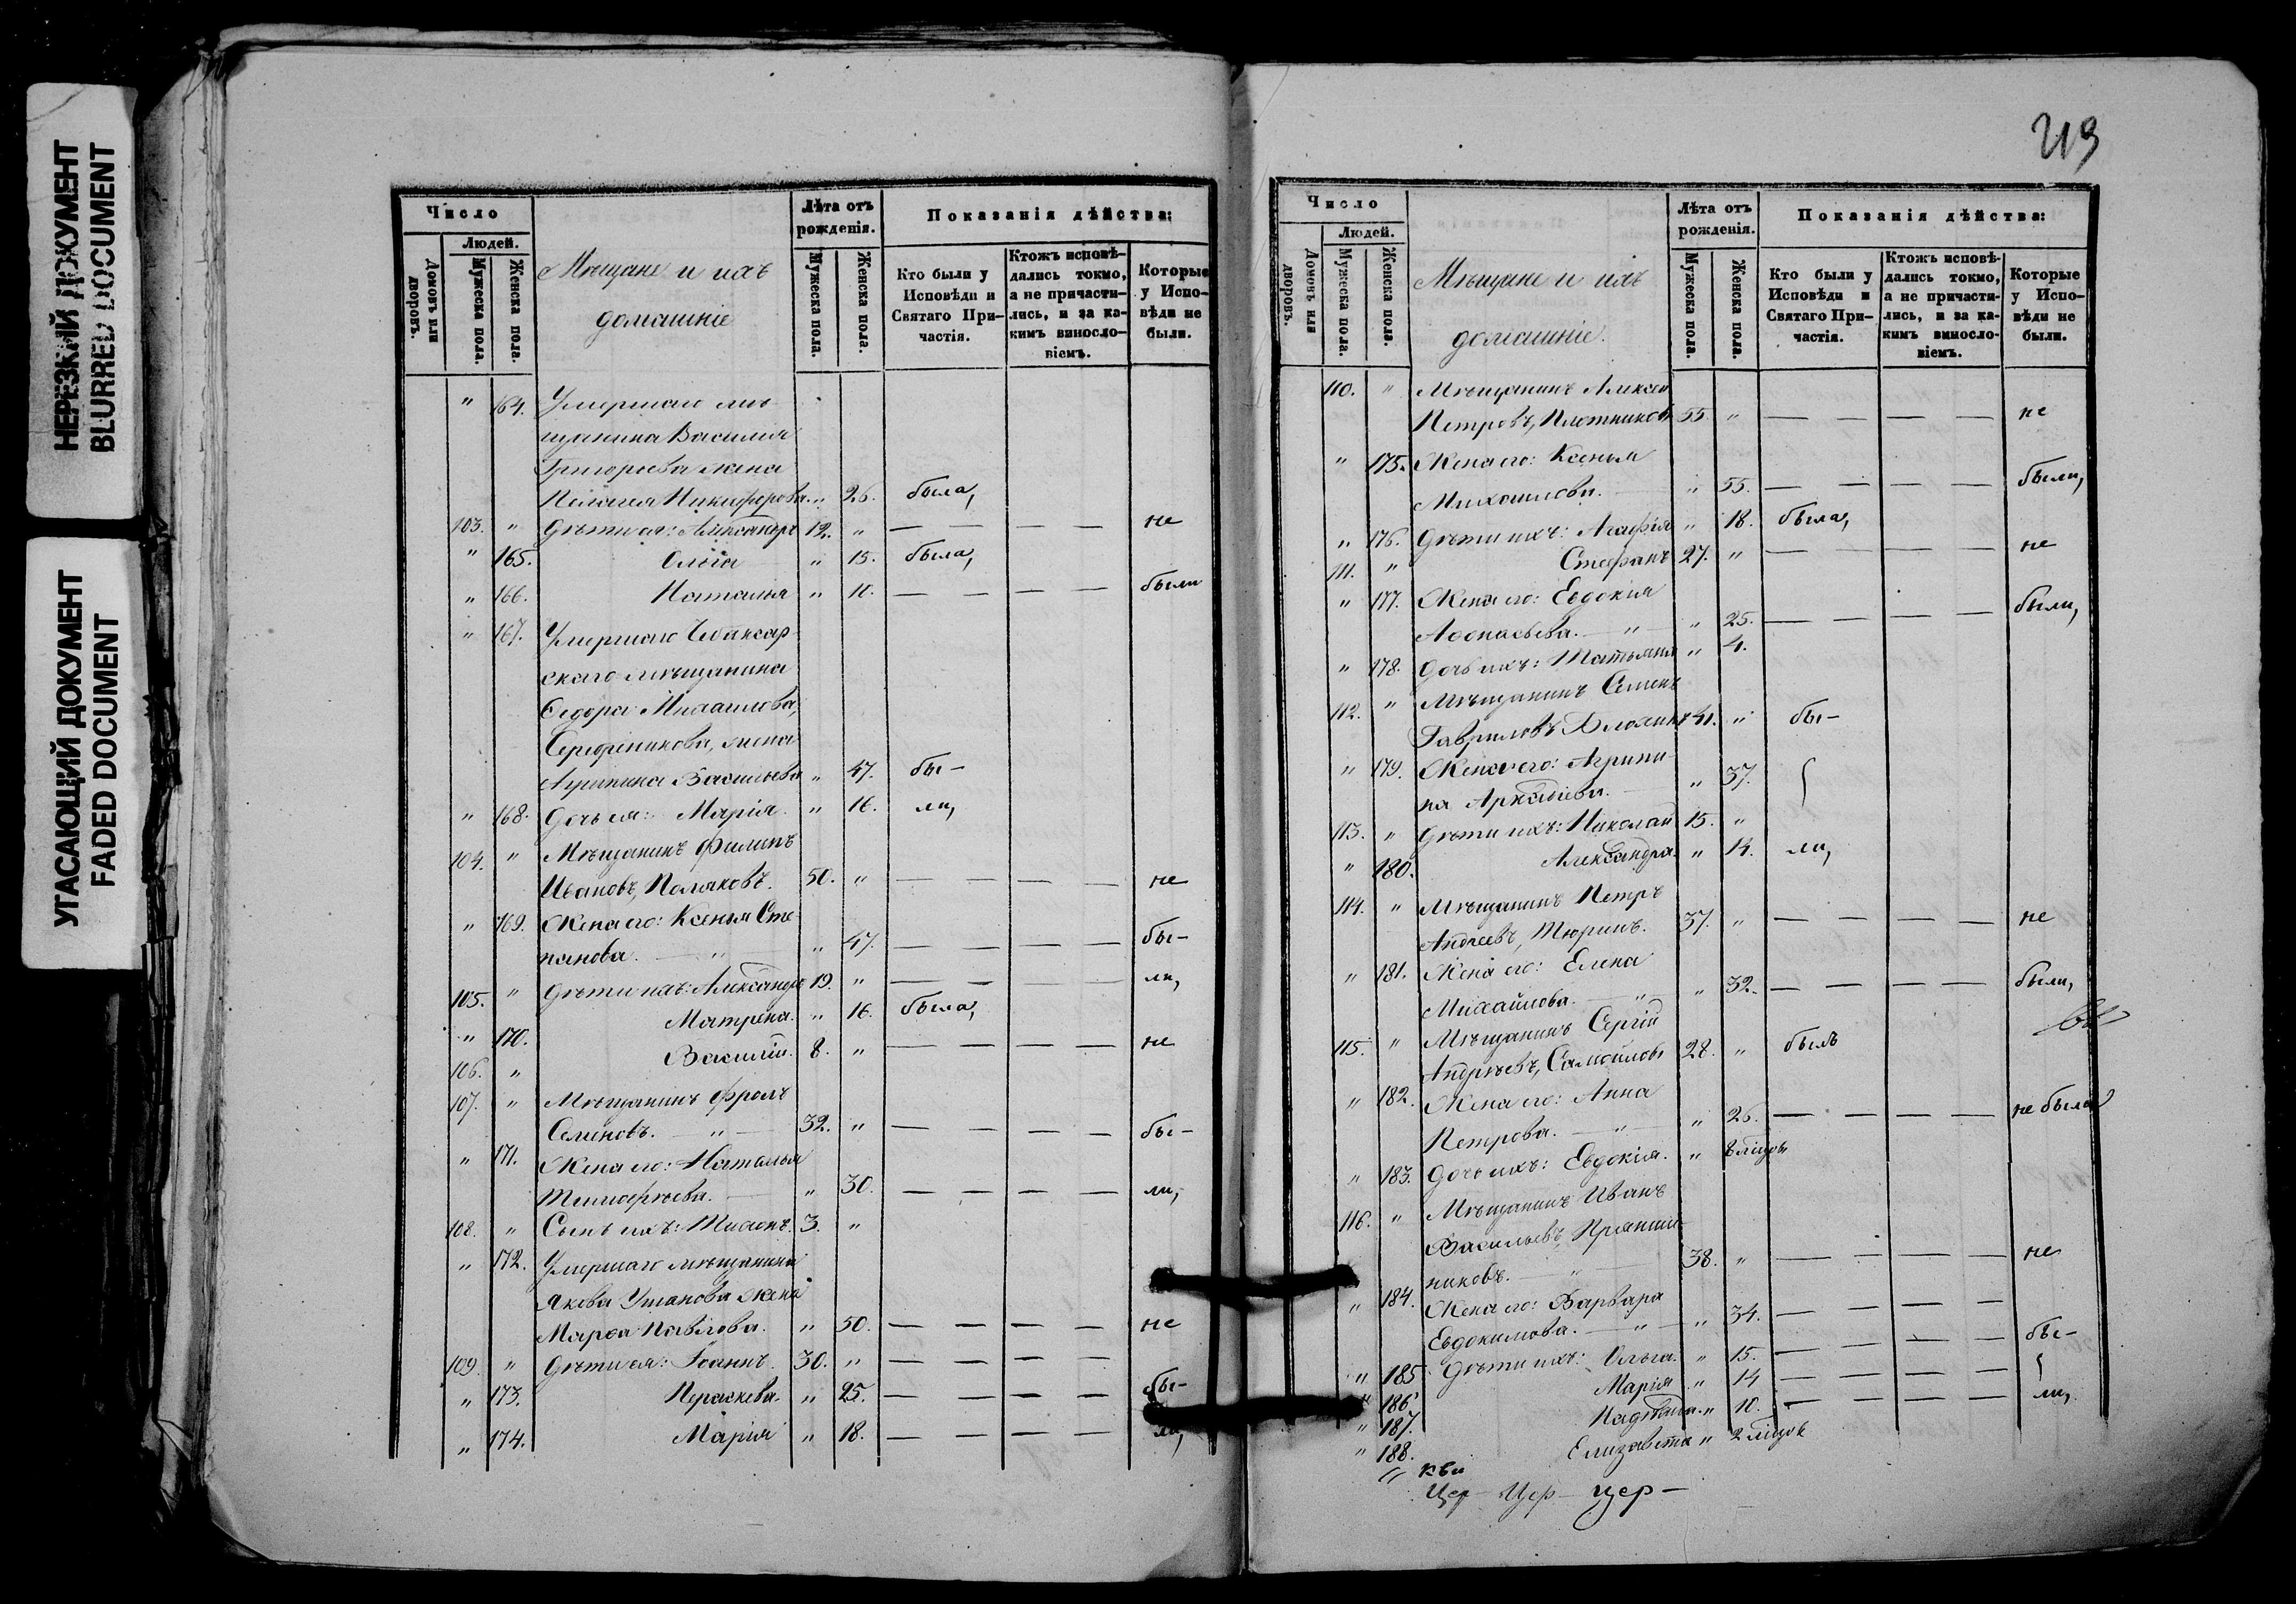 НЕРЕЗКИЙ ДОКУМЕНТ
BLURRED DOCUMENT
УГАСАЮЩИЙ ДОКУМЕНТ
FADED DOCUMENT
Число
Людей.
Домовъ или дворовъ.
Мужеска пола.
Женска пола.
Мѣщане и ихъ
домашніе
Лѣта отъ рожденія.
Мужеска пола.
Женска пола.
Показанія дѣйства:
Кто были у Исповѣди и Святаго При-
частія.
Ктожъ исповѣ-
дались токмо,
а не причасти-
лись, и за ка-
кимъ винословіемъ.
Которые у Испо-
вѣди не были.
" 164. Умершаго мѣ-
щанина Василія
Григорьева жена
Пелагея Никифорова. " 26. была,
103. " Дѣти ея: Александръ 12. " — — — — не
" 165. Ольга " 15. была,
" 166. Наталья " 10. — — — — были
" 167. Умершаго Чебоксар-
скаго мѣщанина
Ѳедора Михаилова,
жена
Агрипина Васильева " 47. бы-
" 168. Дочь ея: Марія. " 16. ли,
104. " Мѣщанинъ Филипъ
Ивановъ, Поляковъ. 50. " — — — — не
" 169. Жена его: Ксенья Сте-
панова. " " 47. — — — — бы-
105. " Дѣти ихъ: Александръ 19. " — — — — ли,
" 170. Матрена. " 16. была,
106. " Василій. 8. " — — — — не
107. " Мѣщанинъ Фролъ
Семеновъ. " 32. " — — — — бы-
" 171. Жена его: Наталья
Тимофѣева. " 30. — — — — ли,
108. " Сынъ ихъ: Тихонъ. 3. "
" 172. Умершаго мѣщанина
Якова Ушанова жена
Марѳа Павлова. " 50. — — — — не
109. " Дѣти ея: Іоаннъ. 30. " — — — —
" 173. Параскева. " 25. — — — — бы-
" 174. Марія " 18. — — — — ли,
213
Число
Людей.
Домовъ или дворовъ.
Мужеска пола.
Женска пола.
Мѣщане и ихъ
домашніе.
Лѣта отъ рожденія.
Мужеска пола.
Женска пола.
Показанія дѣйства:
Кто были у Исповѣди и Святаго При-
частія.
Ктожъ исповѣ-
дались токмо,
а не причасти-
лись, и за ка-
кимъ винословіемъ.
Которые у Испо-
вѣди не были.
110. " Мѣщанинъ Алексей
Петровъ, Плотниковъ 55. " — — — — не
" 175. Жена его: Ксенья
Михаилова. " 55. — — — — были,
" 176. Дѣти ихъ: Агафія " 18. была,
111. " Стефанъ 27. " — — — — не
" 177. Жена его: Евдокія
Аѳонасьева. " " 25. — — — — были,
" 178. Дочь ихъ: Татьяна " 4.
112. " Мѣщанинъ Семенъ
Гавриловъ 41. " бы-
" 179. Жена его: Агрипи-
на Аркадіева. " 37.
113. " Дѣти ихъ: Николай 15. "
" 180. Александра. " 14. ли,
114. " Мѣщанинъ Петръ
Андреевъ, Тюринъ. 37. " — — — — не
" 181. Жена его: Елена
Михайлова. " " 32. — — — — были,
115. " Мѣщанинъ Сергій
Андрѣевъ, Самойловъ 28. " былъ
" 182. Жена его: Анна
Петрова. " " 26. — — — — не была
" 183. Дочь ихъ: Евдокія. " 8
116. " Мѣщанинъ Иванъ
Васильевъ, Пряниш-
никовъ. " 38. " — — — — не
" 184. Жена его: Варвара
Евдокимова. " " 34. — — — —
" 185 Дѣти ихъ: Ольга. " 15. — — — — бы-
" 186 Марія " 14 — — — —
" 187. Надежда. " 10. — — — — ли,
" 188. Елизавета " 2
Цер- Цер- цер-